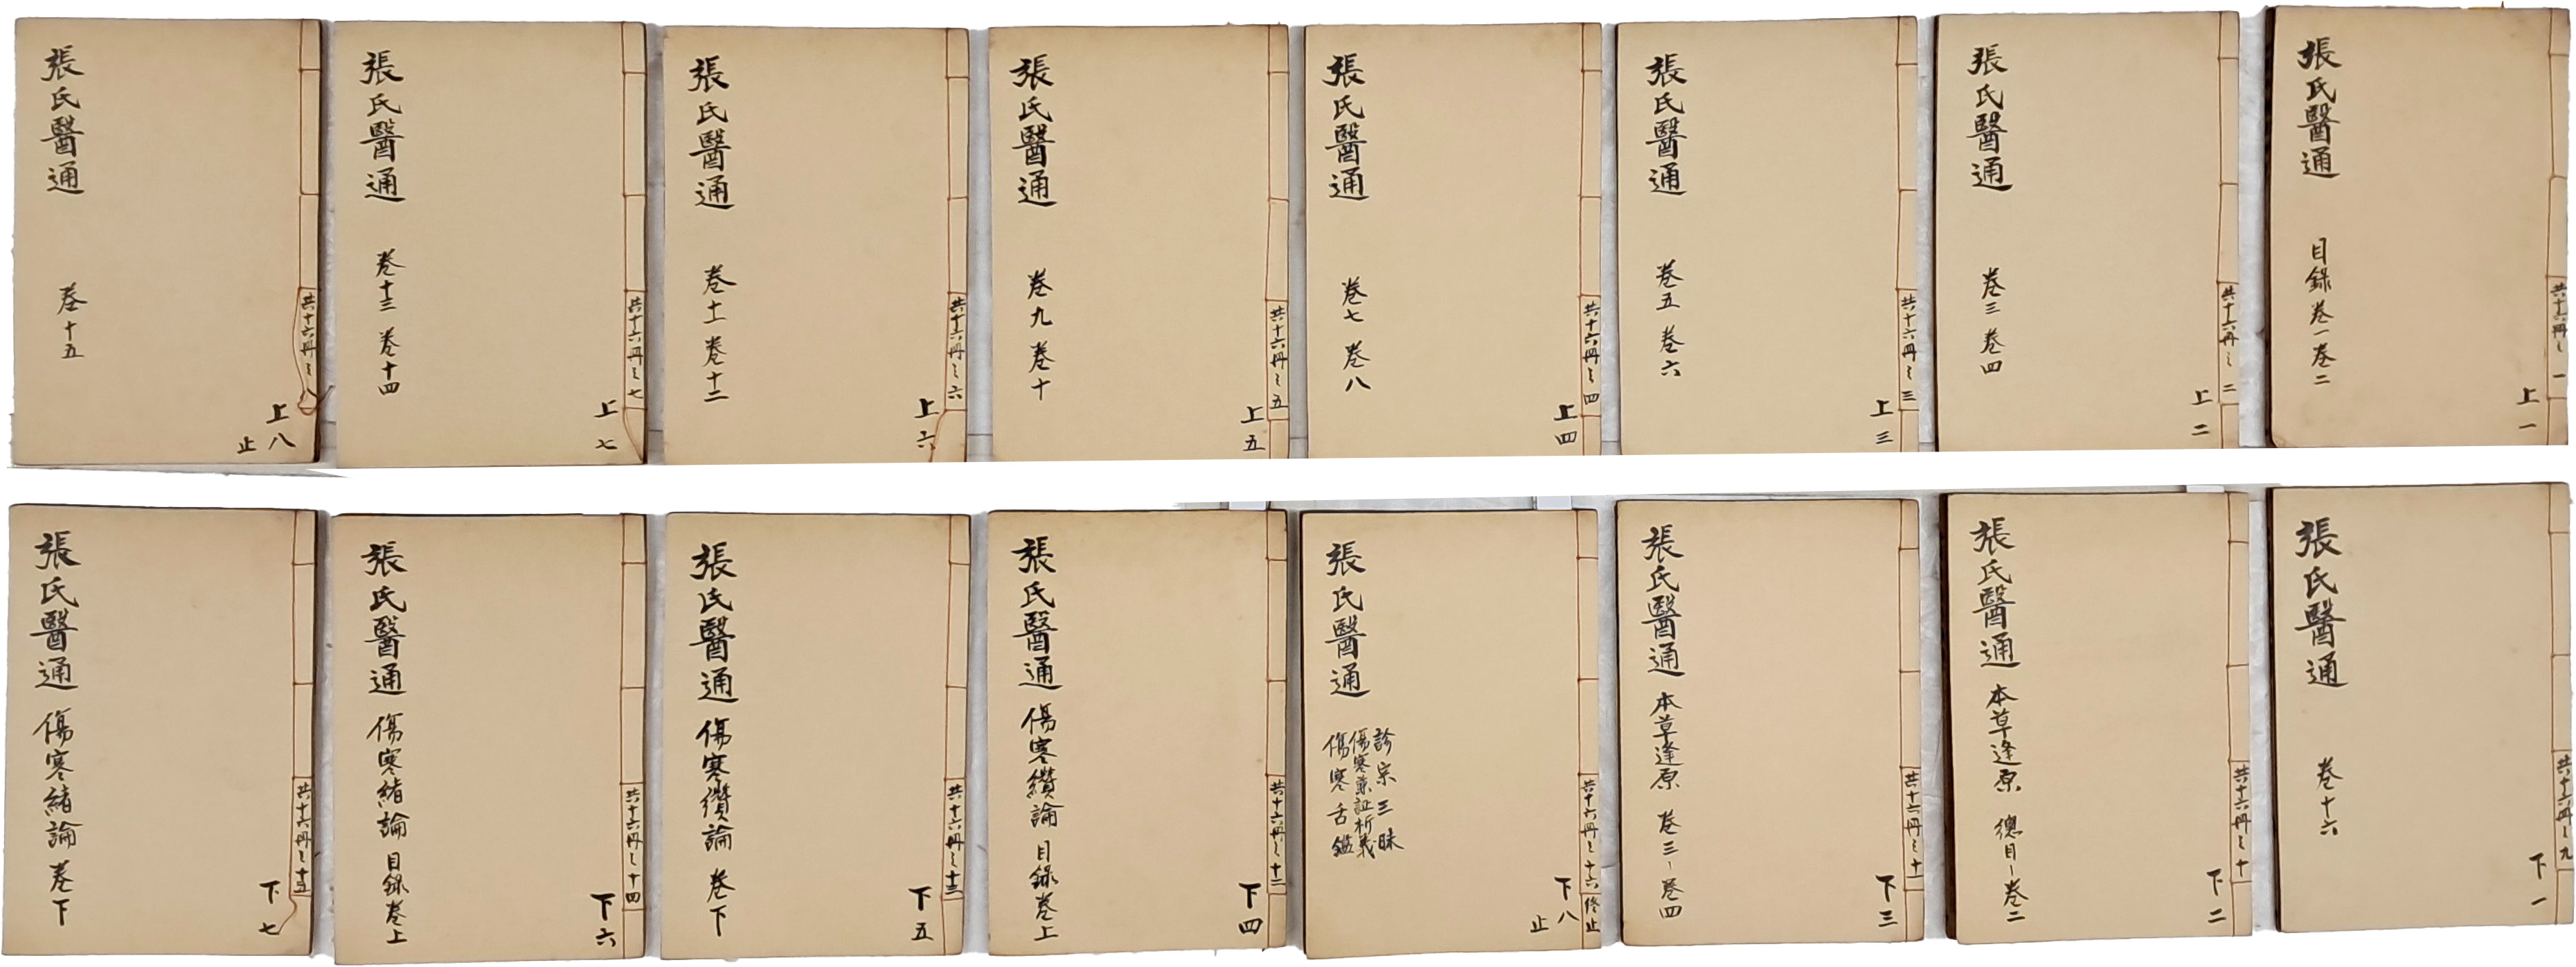 共十六冊之一
上一
張氏醫通 目錄 卷一 卷二
共十六冊之二
上二
張氏醫通 卷三 卷四
共十六冊之三
上三
張氏醫通 卷五 卷六
共十六冊之四
上四
張氏醫通 卷七 卷八
共十六冊之五
上五
張氏醫通 卷九 卷十
共十六冊之六
上六
張氏醫通 卷十一 卷十二
共十六冊之七
上七
張氏醫通 卷十三 卷十四
共十六冊之八
上八
止
張氏醫通 卷十五
共十六冊之九
下一
張氏醫通 卷十六
共十六冊之十
下二
張氏醫通 本草逢原 總目-卷二
共十六冊之十一
下三
張氏醫通 本草逢原 卷三-卷四
共十六冊之十六終止
下八
止
診宗三昧
傷寒兼証析義
傷寒舌鑑
張氏醫通
共十六冊之十二
下四
張氏醫通 傷寒纘論 目錄卷上
共十六冊之十三
下五
張氏醫通 傷寒纘論 卷下
共十六冊之十四
下六
張氏醫通 傷寒緒論 目錄卷上
共十六冊之十五
下七
張氏醫通 傷寒緒論 卷下